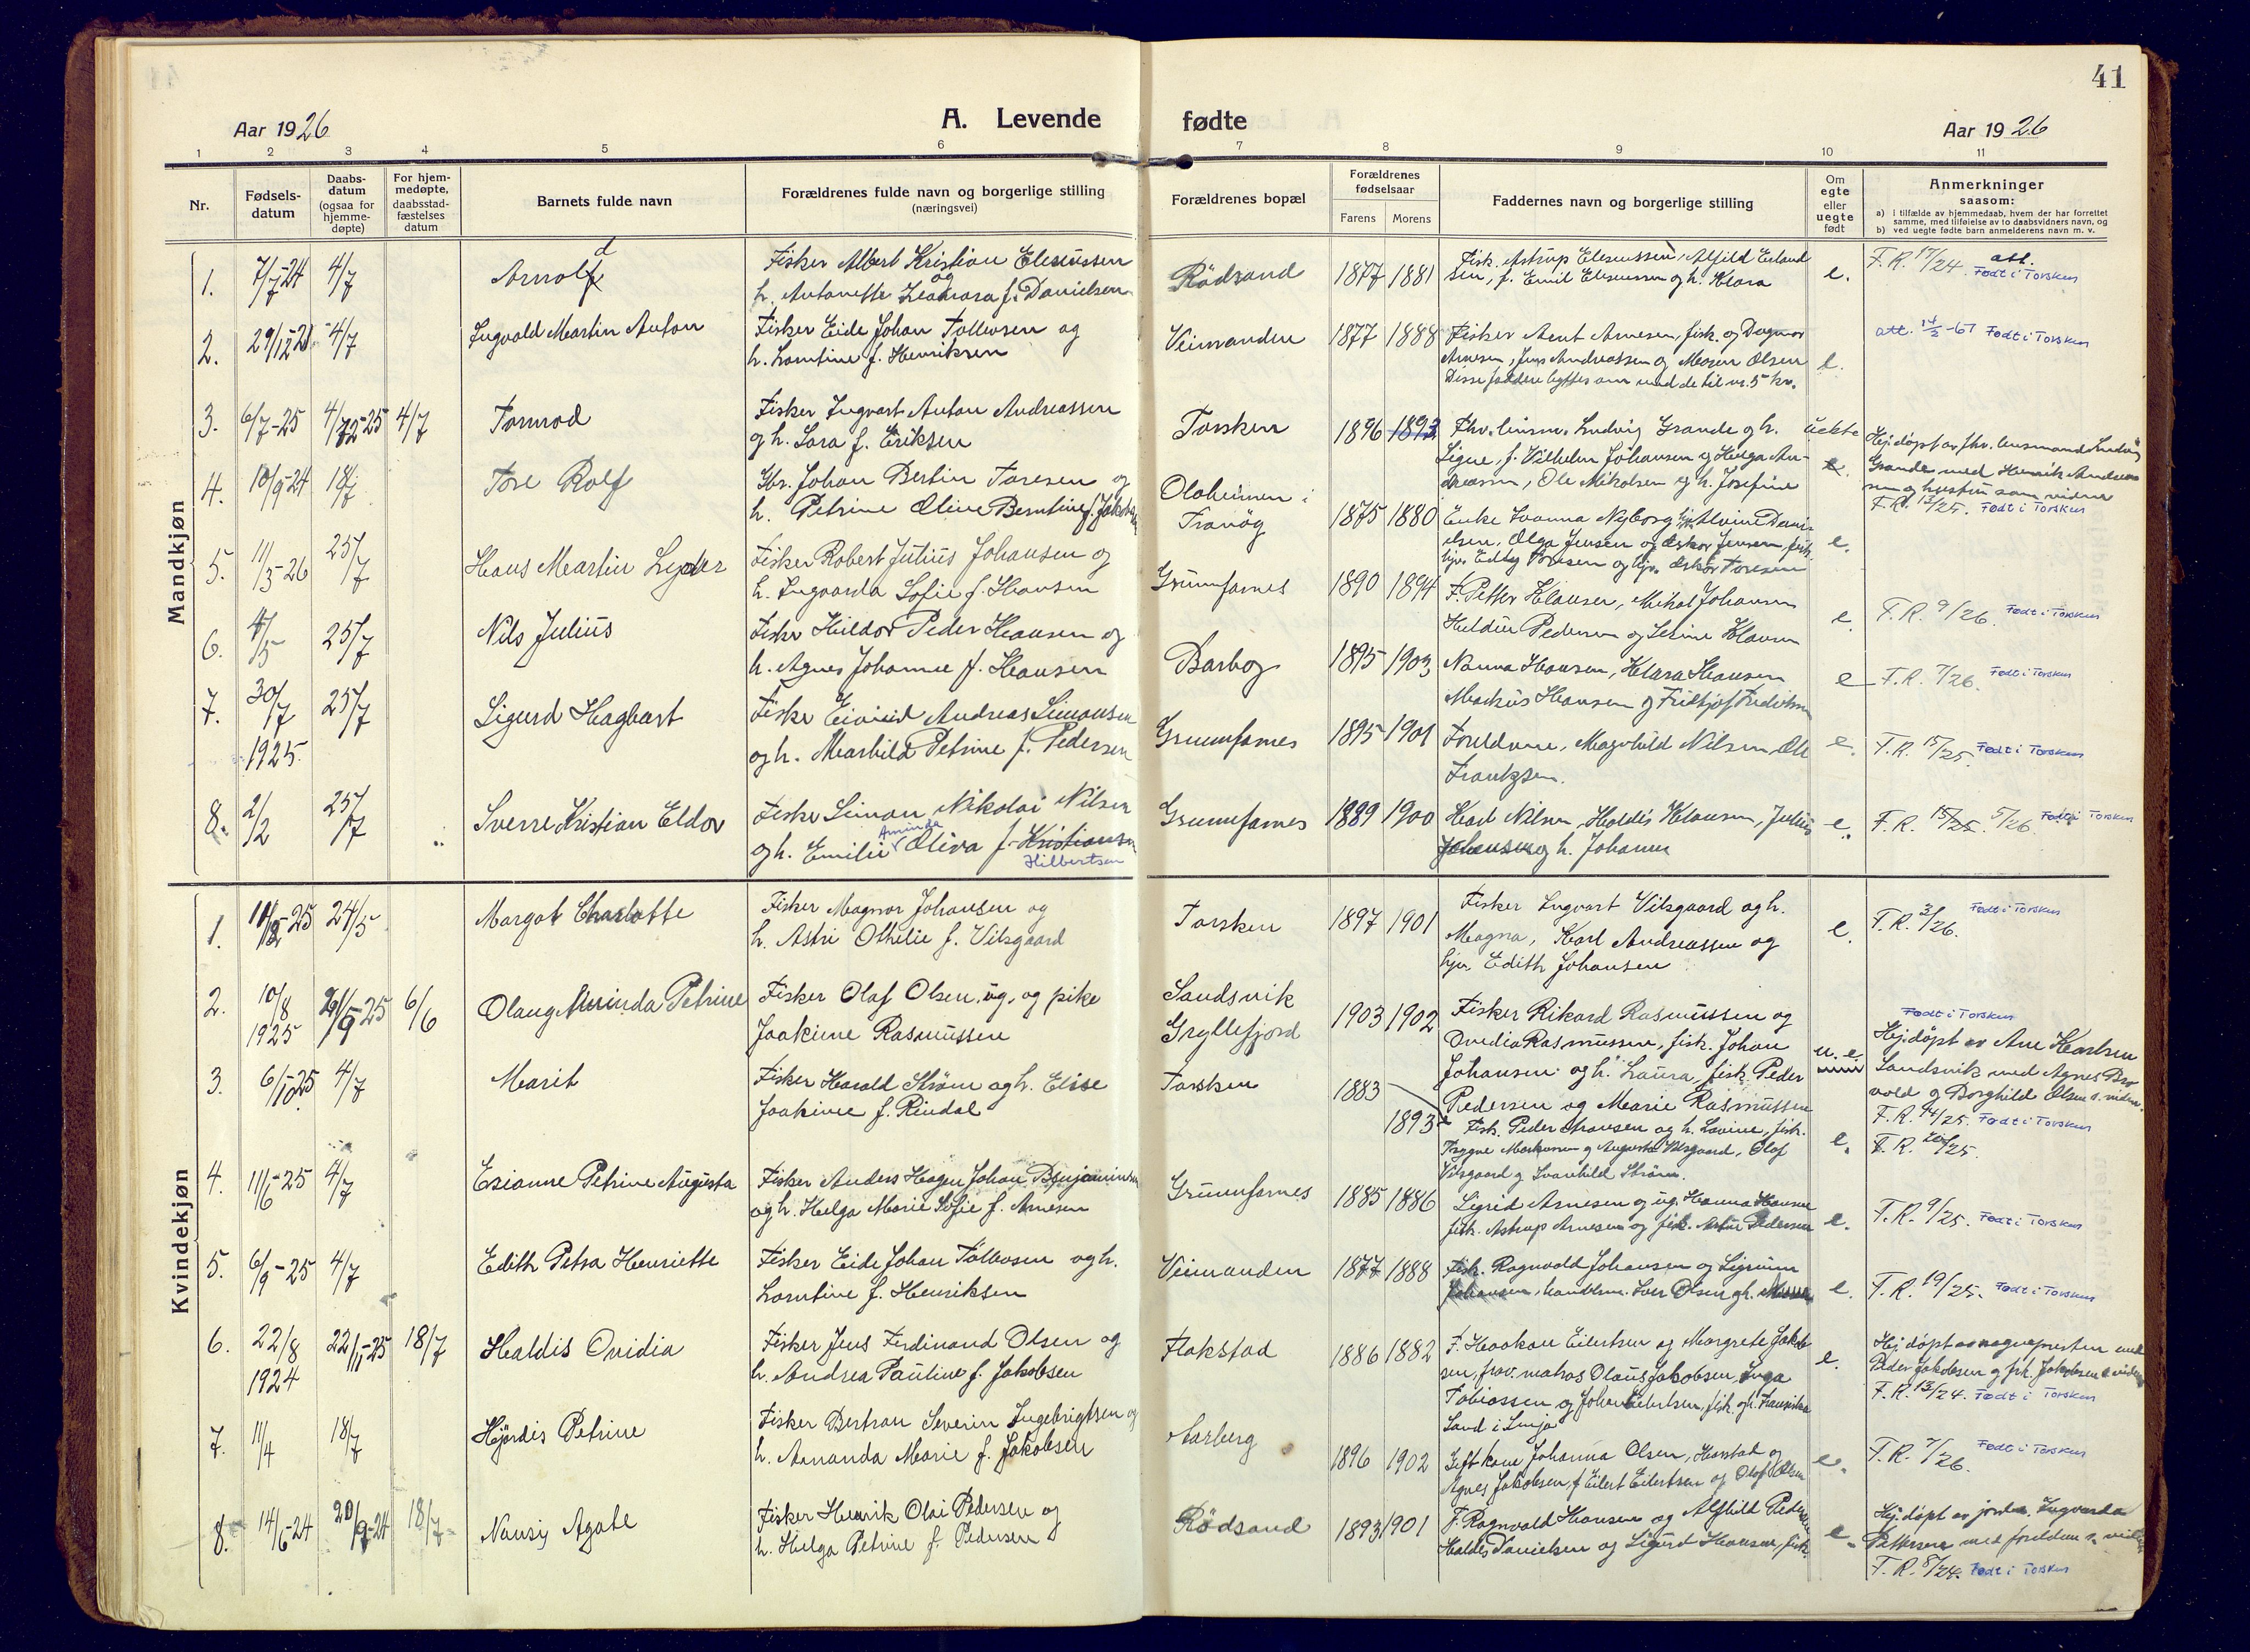 41
Aar 1926
A. Levende fødte
Aar 1926
1 2 3 4 5 6 7 8 9 10 11
Nr.
Fødsels-
datum
Daabs-
datum
(ogsaa for
hjemme-
døpte)
For hjem-
medøpte,
daabsstad-
fæstelses
datum
Barnets fulde navn
Forældrenes fulde navn og borgerlige stilling
(næringsvei)
Forældrenes bopæl
Forældrenes
fødselsaar
Farens Morens
Faddernes navn og borgerlige stilling
Om
egte
eller
uegte
født
Anmerkninger
saasom:
a) i tilfælde av hjemmedaab, hvem der har forrettet
samme, med tilføielse av to daabsvidners navn, og
b) ved uegte fødte barn anmelderens navn m. v.
Mandkjøn
1. 7/7-24 4/7 Arnold
Fisker Albert Kristian Eleseussen
og
h. Antonette f. Danielsen
Rödsand 1877 1881
Fisk. Astrup Eleseussen, Alfild Erland
sen, f. Emil Eleseussen og h. Klara
e.
F.R. 17/24. att. Født i Torsken
2. 29/12-21 4/7 Ingvald Martin Anton
Fisker Eide Johan Tollevsen og
h. Lorntine f. Henriksen
Veimanden 1877 1888
Fisker Arnt Arnesen, fisk. og Dagmar
Arnesen, Jens Andreassen og Mosine Olsen
Disse faddere byttes om med de til nr. 5 kv.
e.
att. 14/2-67 Født i Torsken
3. 6/7-25 4/12-25 4/7 Tormod
Fisker Ingvart Anton Andreassen
og h. Sara f. Eriksen
Torsken 1896 1893
Fhv. lensm. Ludvig Grande og h.
Signe, f. Vilhelm Johansen og Helga An-
dreassen, Ole Mikalsen og h. Josefine
uekte
e.
Hj.døpt av fhv. lensmand Ludvig
Grande med Henrik Andreas
sen og hustru som vidner
F.R. 12/25. Født i Torsken
4. 10/9-24 18/7 Tore Rolf
Gbr. Johan Bertin Toresen og
h. Petrine Oline Berntine f. Jakobsen
Olaheimen i
Tranöy
1875 1880
Enke Ivanna Nyborg, Alvine Dani-
elsen, Olga Jensen og Oskar Jensen, fisk.
hjv. Edby Toresen og hjv. Oskar Toresen
e.
5. 11/3-26 25/7 Hans Martin Lyder
Fisker Robert Julius Johansen og
h. Ingvarda Sofie f. Hansen
Grunnfarnes 1890 1894
F. Petter Klausen, Mikal Johansen
Huldur Pedersen og Sesine Klausen
e.
F.R. 9/26. Født i Torsken
6. 4/5 25/7 Nils Julius
Fisker Hildor Peder Hansen og
h. Agnes Johanne f. Hansen
Barbog 1895 1903
Nanna Hansen, Klara Hansen
Markus Hansen og Fridtjof Fredriksen
e
F.R. 7/26. Født i Torsken
7. 30/7
1925.
25/7 Sigurd Hagbart
Fisker Eivind Andreas Simonsen
og h. Marhild Petrine f. Pedersen
Grunnfarnes 1895 1901
Foreldrene, Magnhild Nilsen, Ole
Frantzsen.
e.
F.R. 15/25. Født i Torsken
8. 2/2 25/7 Sverre Kristian Eldor
Fisker Simon Nikolai Nilsen
Aminda
og h. Emilie Oliva f. Kristiansen
Hilbertsen
Grunnfarnes 1889 1900
Karl Nilsen, Haldis Klausen, Julius
Johansen og h. Johanna
e.
F.R. 15/25. 5/26. Født i Torsken
Kvindekjøn
1. 10/12-25 24/5 Margot Charlotte
Fisker Magnor Johansen og
h. Astri Othilie f. Vilsgaard
Torsken 1897 1901
Fisker Ingvart Vilsgaard og h.
Magna, Karl Andreassen og
hjv. Edith Johansen
e.
F.R. 3/26. Født i Torsken
2. 10/8
1925
21/9-25 6/6 Olaug Petrine
Fisker Olaf Olsen, ug. og pike
Joakime Rasmussen
Sandsvik
Gryllefjord
1903 1902
Fisker Rikard Rasmussen og
Ovedia Rasmussen, fisk. Johan
Johansen og h. Laura, fisk. Peder
Pedersen og Marie Rasmussen
u.e.
Født i Torsken
Hj.døpt av Ane Karlsen
Sandsvik med Agnes Bro
vold og Borghild Olsen s. vidner.
F.R. 14/25. Født i Torsken
3. 6/10-25 4/7 Marit
Fisker Harald Strøm og h. Elise
Joakime f. Rindal
Torsken 1883 1893
Fisk. Peder Hansen og h. Lovine, fisk.
Trygve Markussen og Augusta Vilsgaard, Olaf
Vilsgaard og Svanhild Strøm.
e.
F.R. 20/25.
4. 11/6-25 4/7 Esianne Petrine Augusta
Fisker Anders Hagen Johan Benjaminsen
og h. Helga Marie Sofie f. Arnesen
Grunnfarnes 1885 1886
Sigrid Arnesen og ug. Hanna Hansen
fisk. Astrup Arnesen og fisk. Pedersen
e.
F.R. 9/25. Født i Torsken
5. 6/9-25 4/7 Edith Petra Henriette
Fisker Eide Johan Tollevsen og h.
Lorntine f. Henriksen
Veimanden 1877 1888
Fisk. Ragnvald Johansen og Sigrunn
Johansen, handelsm. Iver Olsen og h.
e.
F.R. 19/25. Født i Torsken
6. 22/8
1924
22/11-25 18/7 Haldis Ovidia
Fisker Jens Ferdinand Olsen og
h. Andrea Pauline f. Jakobsen
Flakstad 1886 1882
F. Haakon Eilertsen og Margrete Jakob
sen, frov. matros Olaus Jakobsen, Inga
Tobiassen og Johan Eilertsen, fisk. og h. Fransiska
Sand i Senja
e.
Hj.døpt av sognepresten med
Peder Jakobsen og frk. Jakobsen s. vidner
F.R. 13/24. Født i Torsken
7. 11/4 18/7 Hjördis Petrine
Fisker Bertran Severin Ingebrigtsen og
h. Amanda Marie f. Jakobsen
Aarberg 1896 1902
Gift kone Johanna Olsen, Harstad og
Agnes Jakobsen, f. Eilert Eilertsen og Olaf Olsen
e.
F.R. 7/26. Født i Torsken
8. 14/6-24 20/9-24 18/7 Nansy Agate
Fisker Henrik Olai Pedersen og
h. Helga Petrine f. Pedersen
Rödsand 1893 1901
F. Ragnvald Hansen og Alfhild Pedersen
Haldis Danielsen og Sigurd Hansen, fisk.
e.
Hj.døpt av jordm. Ingvarda
Pettersen med foreldrene s. vidner
F.R. 8/24. Født i Torsken